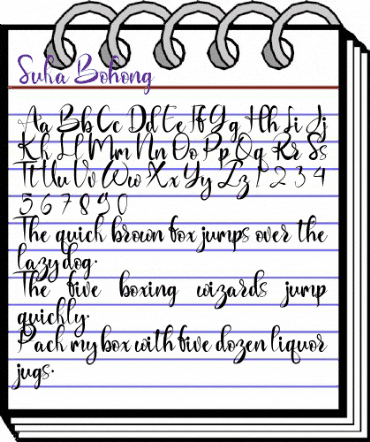 Suka Bohong
Aa Bb Cc Dd Ee Ff Gg Hh Ii Jj
Kk Ll Mm Nn Oo Pp Qq Rr Ss
Tt Uu Vv Ww Xx Yy Zz 1 2 3 4
5 6 7 8 9 0
The quick brown fox jumps over the
lazy dog.
The five boxing wizards jump
quickly.
Pack my box with five dozen liquor
jugs.